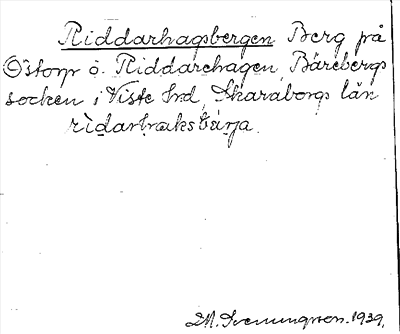 Riddarhagsbergen Berg på
Östorp o. Riddarehagen, Bärebergs
socken i Viste hrd, Skaraborgs län
D.M. Svenungsson. 1939.